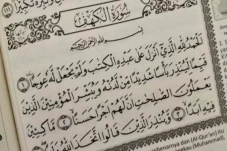 سورة الكهف
بسم الله الرحمن الرحيم
الحمد لله الذي أنزل على عبده الكتب ولم يجعل له عوجا ١
قيما لينذر بأسا شديدا من لدنه ويبشر المؤمنين الذين
يعملون الصلحت أن لهم أجرا حسنا ٢ مكثين
فيه أبدا ٣ وينذر الذين قالوا اتخذ الله
(Al-Qur'an) itu
(Muhammad)